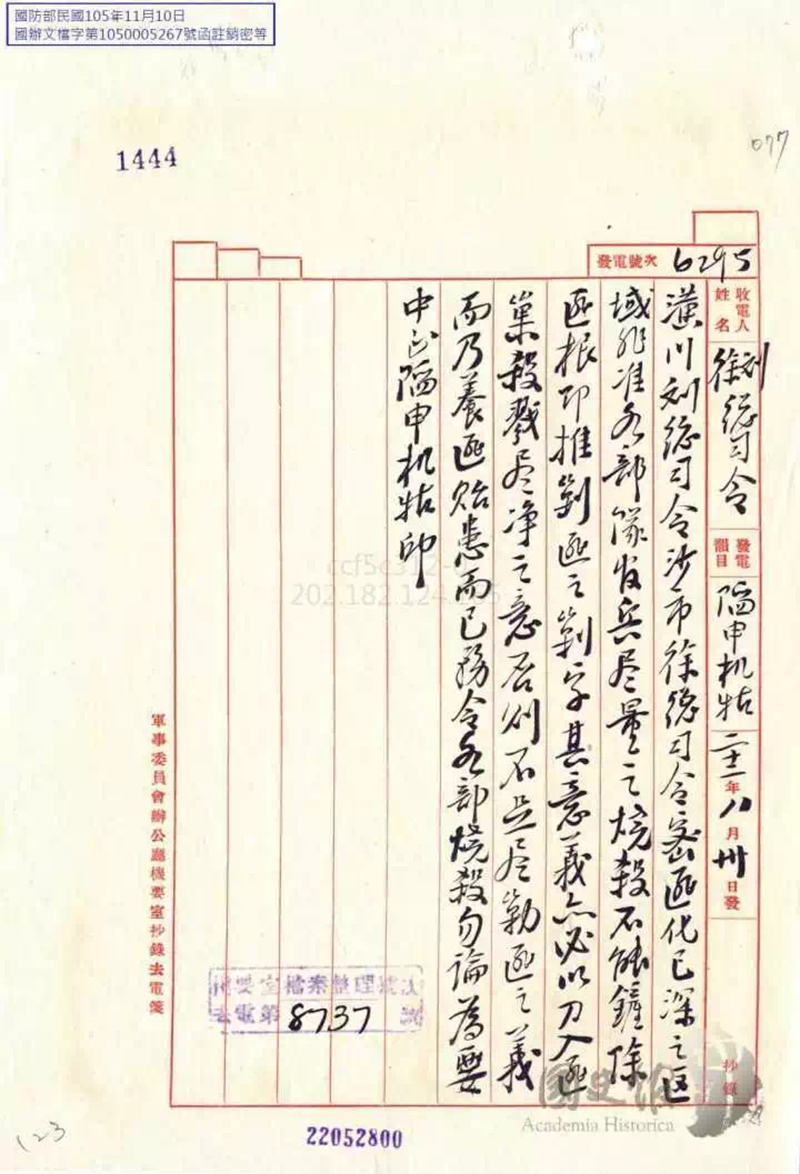 國防部民國105年11月10日
國辦文檔字第1050005267號函註銷密等
1444
077
發電號次 6295
收電人姓名 劉徐總司令
發電韻目 陷申机牯 二十一年八月卅日發
潢川刘總司令沙市徐總司令密匪化已深之区
域非准各部隊官兵尽量之燒殺不能鏟除
匪根卽推剿匪之剿字其意義亦必以刀入匪
巢殺戮尽净之意否則不足尽剿匪之義
而乃養匪貽患而已務令各部燒殺勿論為要
中正陷申机牯印
抄錄
軍事委員會辦公廳機要室抄錄去電箋
機要室檔案整理號次
去電第8737號
ccf5c312-
202.182.124.
國史館
Academia Historica
123
22052800